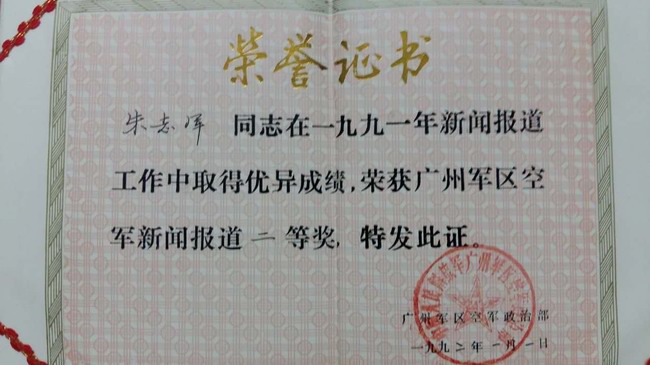 荣誉证书
朱志军 同志在一九九一年新闻报道
工作中取得优异成绩,荣获广州军区空
军新闻报道二等奖,特发此证。
广州军区空军政治部
一九九二年一月一日